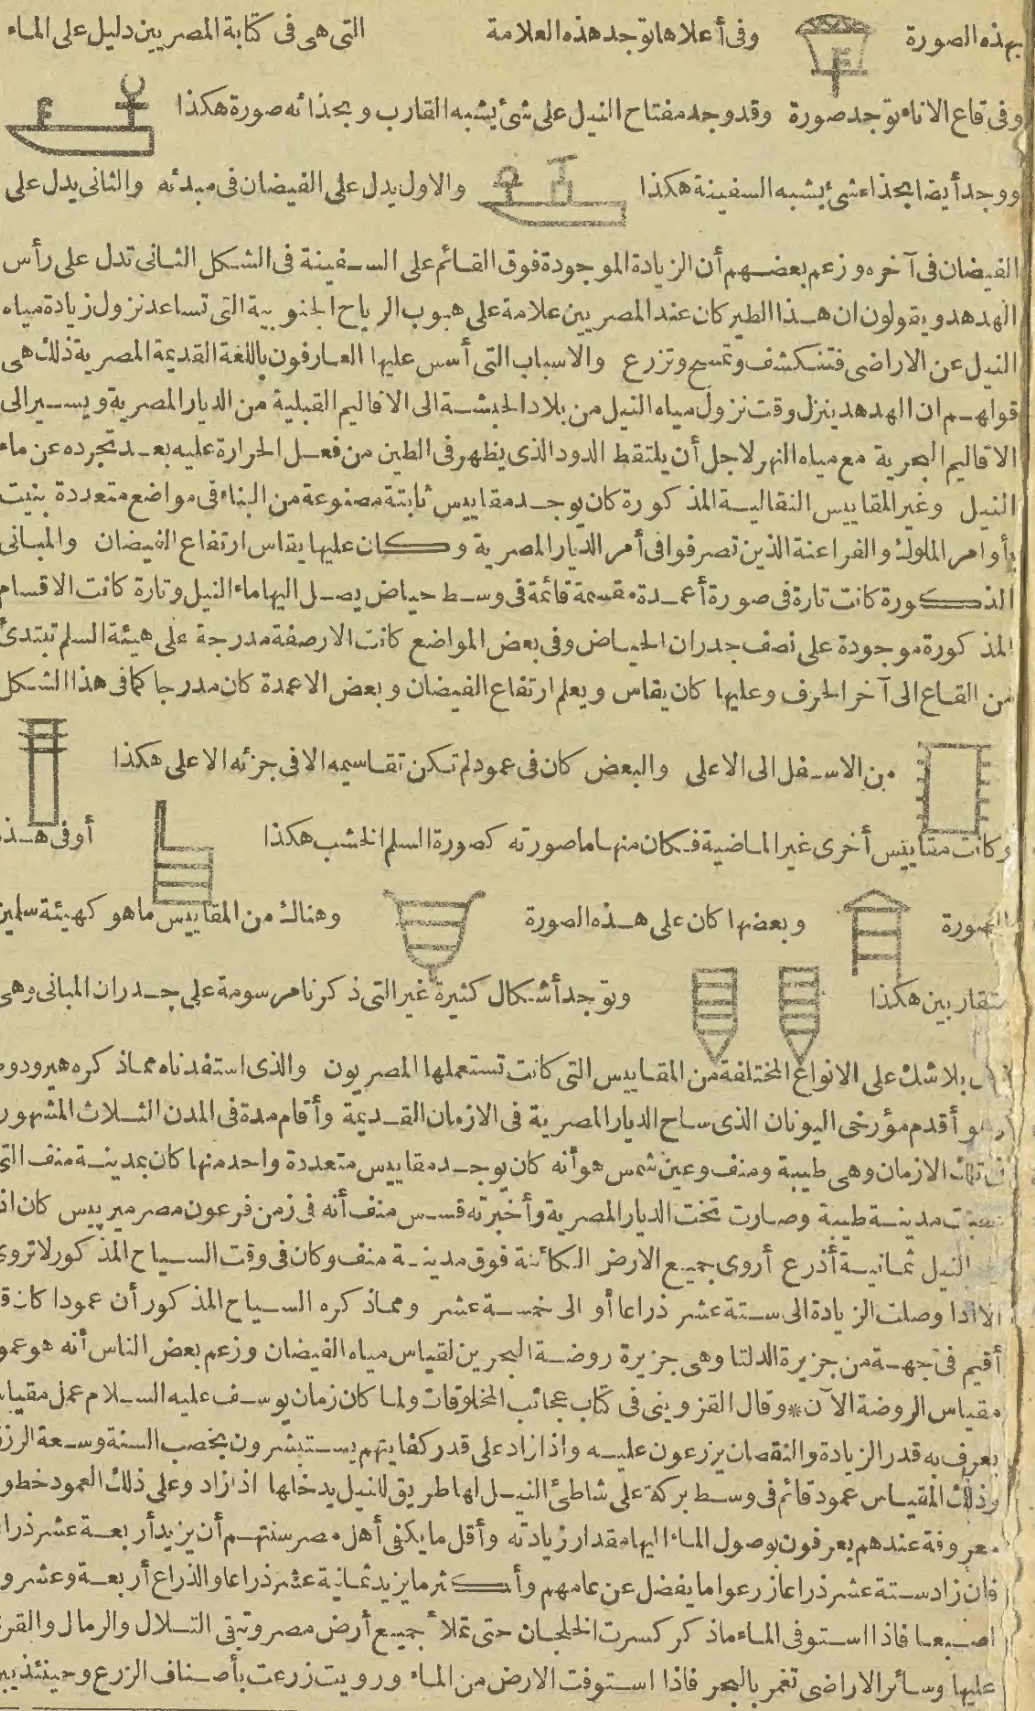 بهذه الصورة وفى أعلاها توجد هذه العلامة التى هى فى كتابة المصريين دليل على الماء
وفى قاع الاناء توجد صورة وقد وجد مفتاح النيل على شئ يشبه القارب وبحذائه صورة هكذا
ووجد أيضا بحذاء شئ يشبه السفينة هكذا والاول يدل على الفيضان فى مبدئه والثانى يدل على
الفيضان فى آخره وزعم بعضهم أن الزيادة الموجودة فوق القائم على السفينة فى الشكل الثانى تدل على رأس
الهدهد ويقولون ان هذا الطير كان عند المصريين علامة على هبوب الرياح الجنوبية التى تساعد نزول زيادة مياه
النيل عن الاراضى فتنكشف وتمسح وتزرع والاسباب التى أسس عليها العارفون باللغة القديمة المصرية ذلك هى
قولهم ان الهدهد ينزل وقت نزول مياه النيل من بلاد الحبشة الى الاقاليم القبلية من الديار المصرية ويسير الى
الاقاليم البحرية مع مياه النهر لاجل أن يلتقط الدود الذى يظهر فى الطين من فعل الحرارة عليه بعد تجرده عن ماء
النيل وغير المقاييس النقالية المذكورة كان يوجد مقاييس ثابتة مصنوعة من البناء فى مواضع متعددة بنيت
بأوامر الملوك والفراعنة الذين تصرفوا فى أمر الديار المصرية وكان عليها يقاس ارتفاع الفيضان والمبانى
المذكورة كانت تارة فى صورة أعمدة مقسمة قائمة فى وسط حياض يصل اليها ماء النيل وتارة كانت الاقسام
المذكورة موجودة على نصف جدران الحياض وفى بعض المواضع كانت الارصفة مدرجة على هيئة السلم تبتدئ
من القاع الى آخر الحرف وعليها كان يقاس ويعلم ارتفاع الفيضان وبعض الاعمدة كان مدرجا كما فى هذا الشكل
من الاسفل الى الاعلى والبعض كان فى عمود لم تكن تقاسيمه الا فى جزئه الاعلى هكذا
وكانت مقاييس أخرى غير الماضية فكان منها ما صورته كصورة السلم الخشب هكذا أو فى هذه
الصورة وبعضها كان على هذه الصورة وهناك من المقاييس ما هو كهيئة سلمين
متقاربين هكذا وتوجد أشكال كثيرة غير التى ذكرنا مرسومة على جدران المبانى وهى
بلا شك على الانواع المختلفة من المقاييس التى كانت تستعملها المصريون والذى استفدناه مما ذكره هيرودوط
وهو أقدم مؤرخى اليونان الذى ساح الديار المصرية فى الازمان القديمة وأقام مدة فى المدن الثلاث المشهورة
فى تلك الازمان وهى طيبة ومنف وعين شمس هو أنه كان يوجد مقاييس متعددة واحد منها كان بمدينة منف التى
مدينة طيبة وصارت تخت الديار المصرية وأخبرته قسس منف أنه فى زمن فرعون مصر ميرييس كان اذا
النيل ثمانية أذرع أروى جميع الارض الكائنة فوق مدينة منف وكان فى وقت السياح المذكور لا تروى
الا اذا وصلت الزيادة الى ستة عشر ذراعا أو الى خمسة عشر ومما ذكره السياح المذكور أن عمودا كان قد
أقيم فى جهة من جزيرة الدلتا وهى جزيرة روضة البحرين لقياس مياه الفيضان وزعم بعض الناس أنه هو عمود
مقياس الروضة الآن * وقال القزوينى فى كتاب عجائب المخلوقات ولما كان زمان يوسف عليه السلام عمل مقياسا
يعرف به قدر الزيادة والنقصان يزرعون عليه واذا زاد على قدر كفايتهم يستبشرون بخصب السنة وسعة الرزق
وذلك المقياس عمود قائم فى وسط بركة على شاطئ النيل لها طريق للنيل يدخلها اذا زاد وعلى ذلك العمود خطوط
معروفة عندهم يعرفون بوصول الماء اليها مقدار زيادته وأقل ما يكفى أهل مصر سنتهم أن يزيد أربعة عشر ذراعا
فان زاد ستة عشر ذراعا زرعوا ما يفضل عن عامهم وأكثر ما يزيد ثمانية عشر ذراعا والذراع أربعة وعشرون
اصبعا فاذا استوفى الماء ما ذكر كسرت الخلجان حتى تملأ جميع أرض مصر وتبقى التلال والرمال والقرى
عليها وسائر الاراضى تغمر بالبحر فاذا استوفت الارض من الماء ورويت زرعت بأصناف الزرع وحينئذ